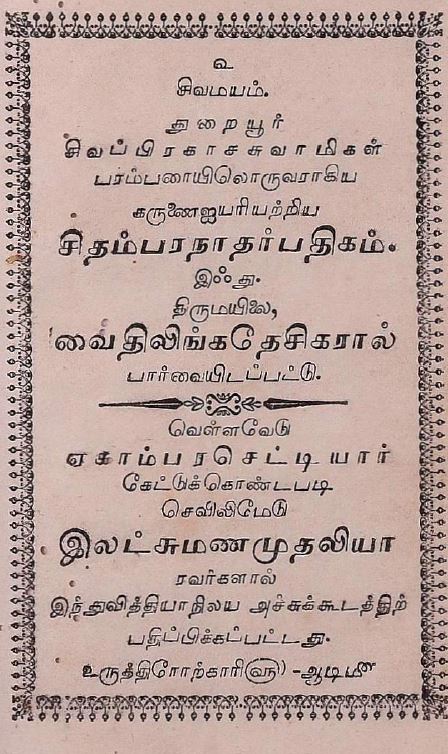 உ
சிவமயம்.
துறையூர்
சிவப்பிரகாசசுவாமிகள்
பரம்பரையிலொருவராகிய
கருணைஐயரியற்றிய
சிதம்பரநாதர்பதிகம்.
இஃது.
திருமயிலை,
வைதிலிங்கதேசிகரால்
பார்வையிடப்பட்டு.
வெள்ளவேடு
ஏகாம்பரசெட்டியார்
கேட்டுக்கொண்டபடி
செவிலிமேடு
இலட்சுமணமுதலியா
ரவர்களால்
இந்துவித்தியாநிலய அச்சுக்கூடத்திற்
பதிப்பிக்கப்பட்டது.
உருத்திரோற்காரி௵ - ஆடி௴